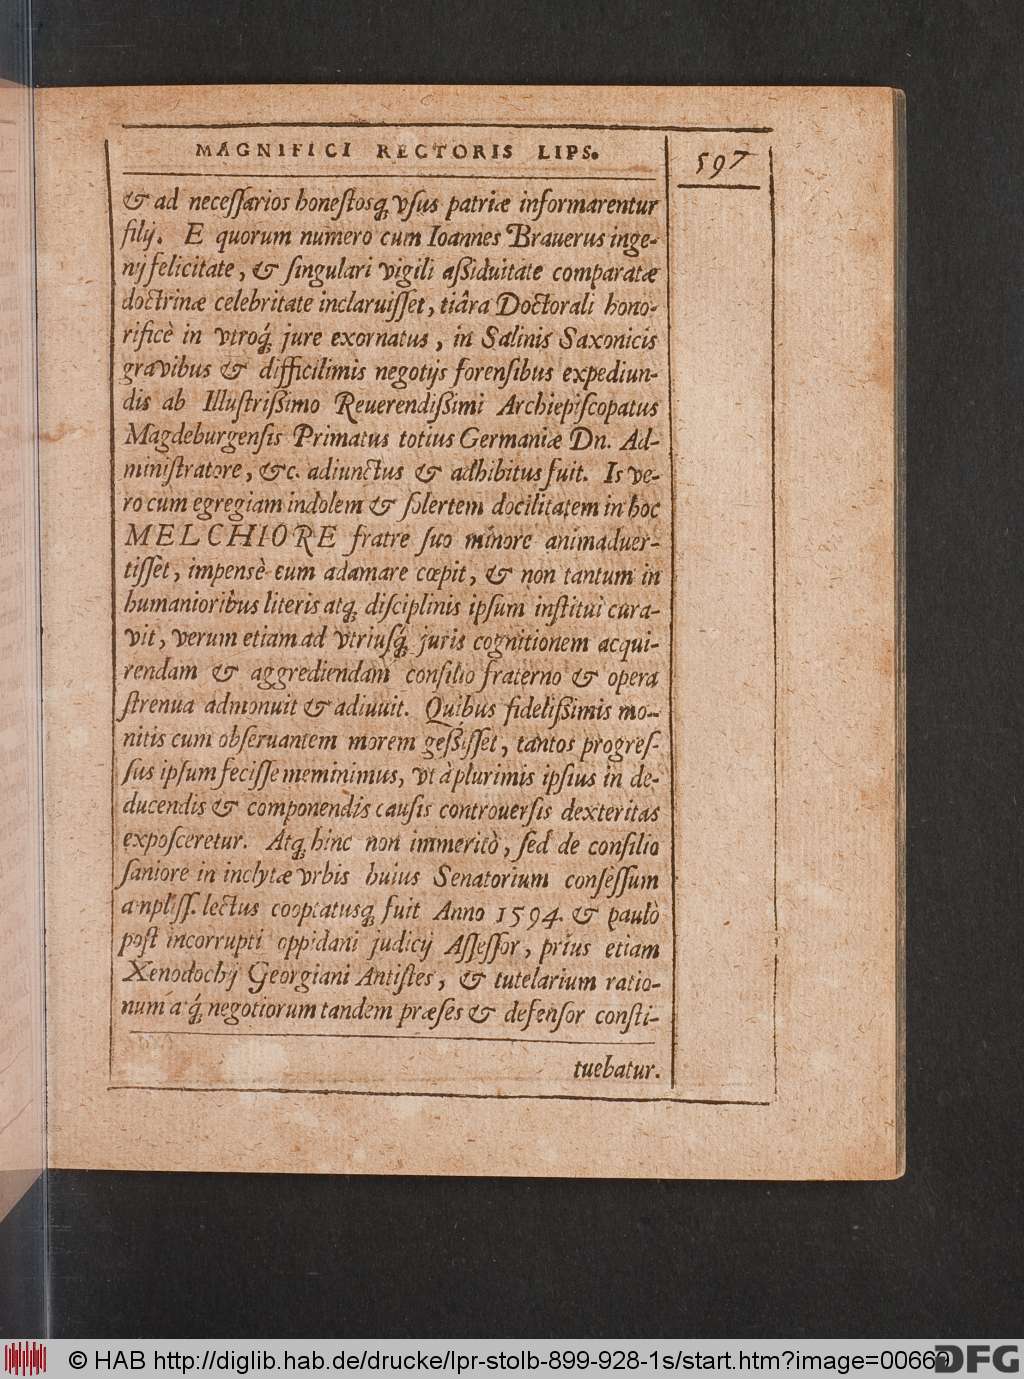 MAGNIFICI RECTORIS LIPS.
597
& ad neceſſarios honeſtosq́; vſus patriæ informarentur
filij. E quorum numero cum Ioannes Brauerus inge-
nij felicitate, & ſingulari vigili aßiduitate comparatæ
doctrinæ celebritate inclaruiſſet, tiâra Doctorali hono-
rificè in vtroq́; jure exornatus, in Salinis Saxonicis
gravibus & difficilimis negotijs forenſibus expediun-
dis ab Illuſtrißimo Reuerendißimi Archiepiſcopatus
Magdeburgenſis Primatus totius Germaniæ Dn. Ad-
miniſtratore, &c. adiunctus & adhibitus fuit. Is ve-
ro cum egregiam indolem & ſolertem docilitatem in hoc
MELCHIORE fratre ſuo minore animaduer-
tiſſet, impensè eum adamare cœpit, & non tantum in
humanioribus literis atq; diſciplinis ipſum inſtitui cura-
vit, verum etiam ad vtriuſq́; juris cognitionem acqui-
rendam & aggrediendam conſilio fraterno & opera
ſtrenua admonuit & adiuuit. Quibus fidelißimis mo-
nitis cum obſeruantem morem geßiſſet, tantos progreſ-
ſus ipſum feciſſe meminimus, vt à plurimis ipſius in de-
ducendis & componendis cauſis controuerſis dexteritas
expoſceretur. Atq; hinc non immeritò, ſed de conſilio
ſaniore in inclytæ vrbis huius Senatorium conſeſſum
ampliſſ. lectus cooptatusq; fuit Anno 1594. & paulò
poſt incorrupti oppidani judicij Aſſeſſor, prius etiam
Xenodochij Georgiani Antiſtes, & tutelarium ratio-
num atq́; negotiorum tandem præſes & defenſor conſti-
tuebatur.
© HAB http://diglib.hab.de/drucke/lpr-stolb-899-928-1s/start.htm?image=00669
DFG